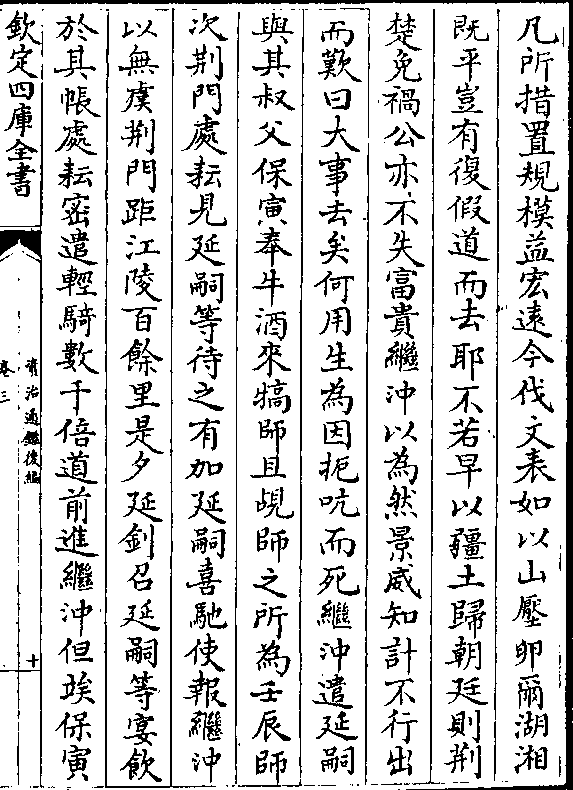 凡所措置規模益宏遠今伐文表如以山壓卵爾湖湘
既平豈有復假道而去耶不若早以疆土歸朝廷則荆
楚免禍公亦不失富貴繼沖以為然景威知計不行出
而歎曰大事去矣何用生為因扼吭而死繼沖遣延嗣
與其叔父保寅奉牛酒來犒師且覘師之所為壬辰師
次荆門處耘見延嗣等待之有加延嗣喜馳使報繼沖
以無虞荆門距江陵百餘里是夕延釗召延嗣等宴飲
於其帳處耘密遣輕騎數千倍道前進繼沖但竢保寅
欽定四庫全書
資治通鑑後編
卷三
十